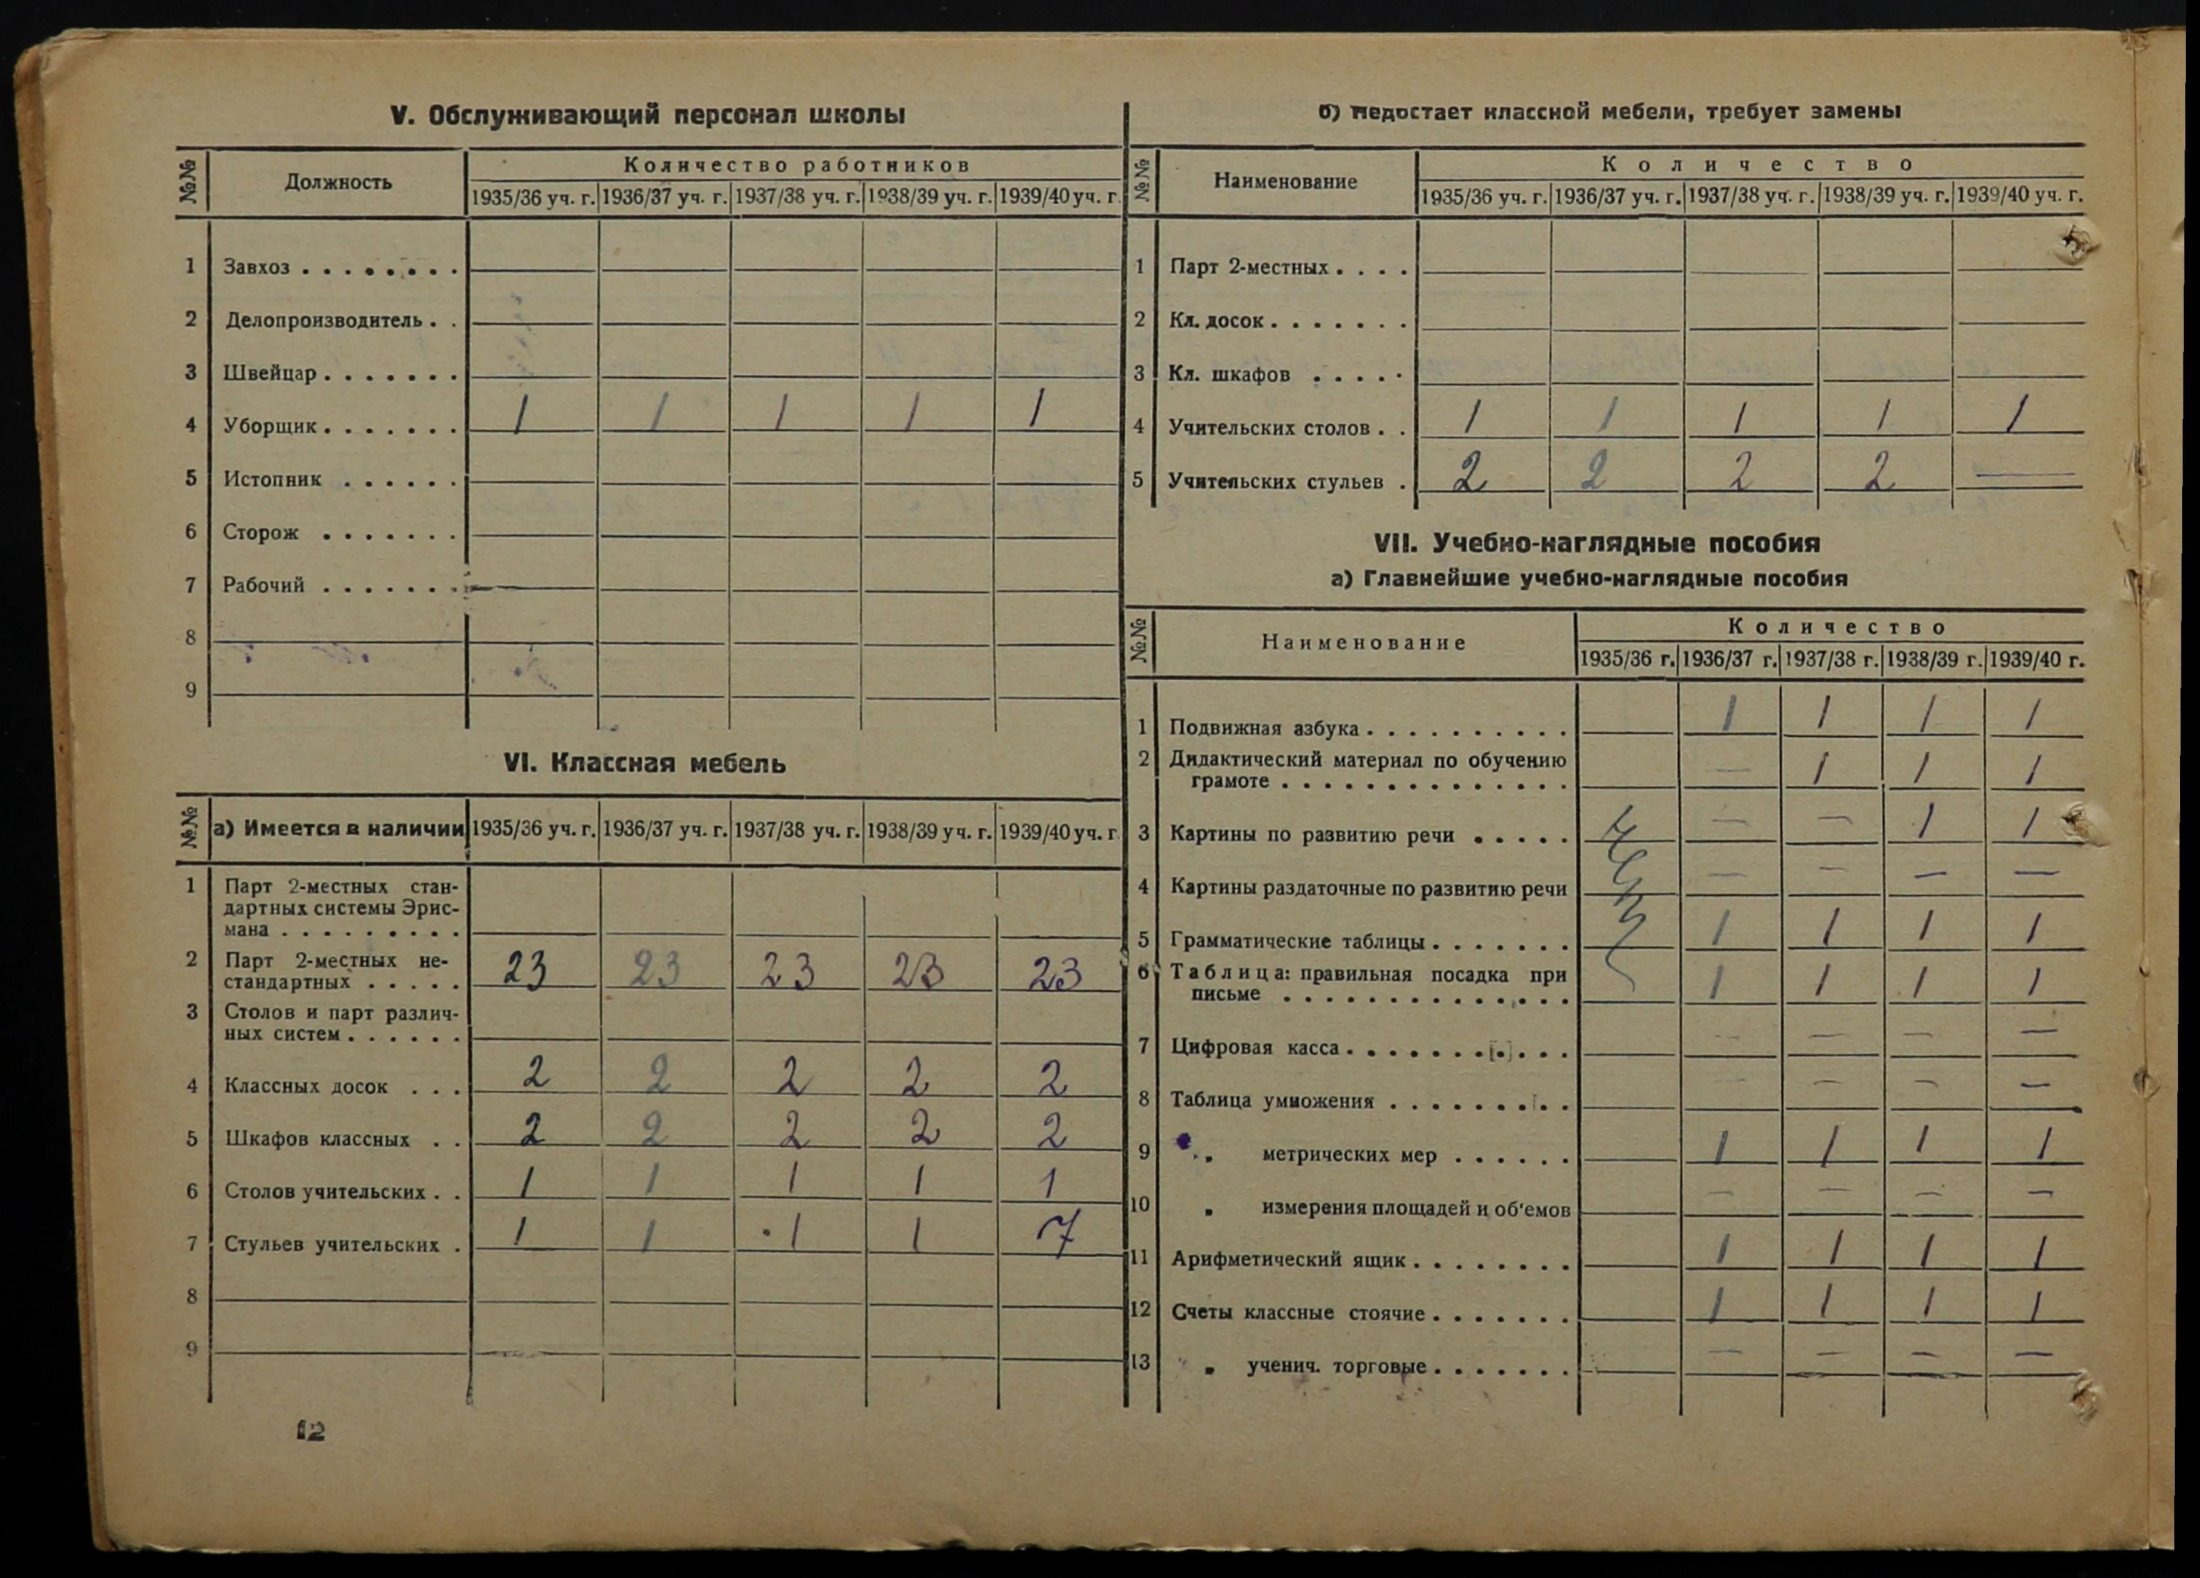 V. Обслуживающий персонал школы
№№ Должность Количество работников
1935/36 уч. г. 1936/37 уч. г. 1937/38 уч. г. 1938/39 уч. г. 1939/40 уч. г.
1 Завхоз . . . . . . . .
2 Делопроизводитель . .
3 Швейцар . . . . . . .
4 Уборщик . . . . . . . 1 1 1 1 1
5 Истопник . . . . . .
6 Сторож . . . . . . .
7 Рабочий . . . . . . .
8
9
VI. Классная мебель
№№ а) Имеется в наличии 1935/36 уч. г. 1936/37 уч. г. 1937/38 уч. г. 1938/39 уч. г. 1939/40 уч. г.
1 Парт 2-местных стан-
дартных системы Эрис-
мана . . . . . . . . .
2 Парт 2-местных не-
стандартных . . . . . 23 23 23 23 23
3 Столов и парт различ-
ных систем . . . . . .
4 Классных досок . . . 2 2 2 2 2
5 Шкафов классных . . 2 2 2 2 2
6 Столов учительских . . 1 1 1 1 1
7 Стульев учительских . 1 1 1 1 7
8
9
12
б) Недостает классной мебели, требует замены
№№ Наименование Количество
1935/36 уч. г. 1936/37 уч. г. 1937/38 уч. г. 1938/39 уч. г. 1939/40 уч. г.
1 Парт 2-местных . . . .
2 Кл. досок . . . . . . .
3 Кл. шкафов . . . . .
4 Учительских столов . . 1 1 1 1 1
5 Учительских стульев . 2 2 2 2 —
VII. Учебно-наглядные пособия
а) Главнейшие учебно-наглядные пособия
№№ Наименование Количество
1935/36 г. 1936/37 г. 1937/38 г. 1938/39 г. 1939/40 г.
1 Подвижная азбука . . . . . . . . . . 1 1 1 1
2 Дидактический материал по обучению
грамоте . . . . . . . . . . . . . . — 1 1 1
3 Картины по развитию речи . . . . . — — 1 1
4 Картины раздаточные по развитию речи — — — —
5 Грамматические таблицы . . . . . . . 1 1 1 1
6 Таблица: правильная посадка при
письме . . . . . . . . . . . . . . 1 1 1 1
7 Цифровая касса . . . . . . . . . . . — — — —
8 Таблица умножения . . . . . . . . . — — — —
9 „ метрических мер . . . . . . 1 1 1 1
10 „ измерения площадей и об'емов — — — —
11 Арифметический ящик . . . . . . . . 1 1 1 1
12 Счеты классные стоячие . . . . . . . 1 1 1 1
13 „ ученич. торговые . . . . . . . — — — —